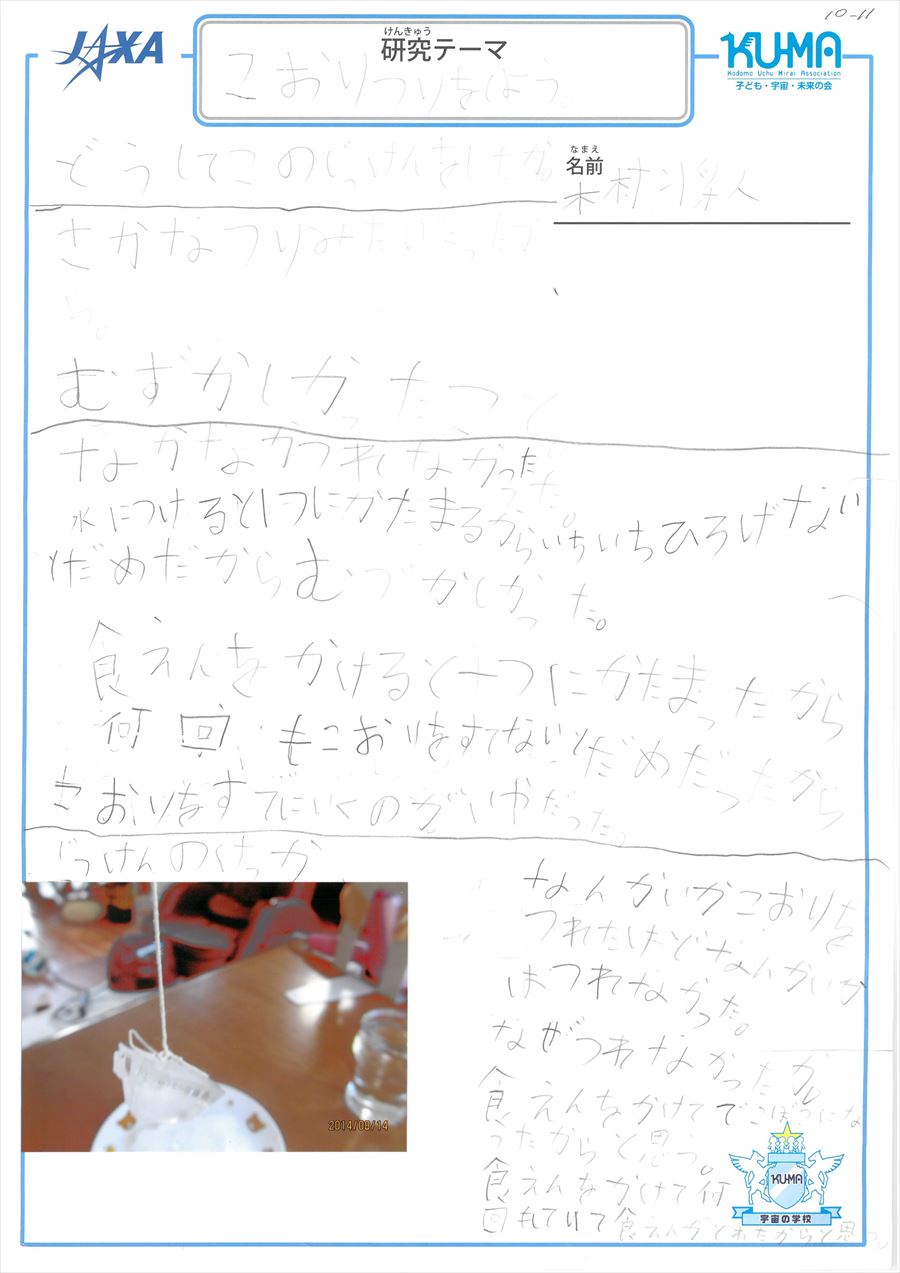 10-11
JAXA
けんきゅう
研究テーマ
こおりつりをしよう。
KU-MA
Kodomo Uchu Mirai Association
子ども・宇宙・未来の会
どうしてこのじっけんをしたか。
なまえ
名前
木村
人
さかなつりみたいだったか
ら。
むずかしかったこと
なかなかつれなかった。
水につけると一つにかたまるからいちいちひろげない
とだめだからむづかしかった。
食えんをかけると一つにかたまったから
何回もこおりをすてないとだめだったから
こおりをすてにいくのがいやだった。
じっけんのけっか
なんかいかこおりを
つれたけどなんかいか
はつれなかった。
なぜつれなかったか
食えんをかけてでこぼこにな
ったからと思う。
食えんをかけて何
回もして
食えんがとれたからと思う。
2014/08/14
KU-MA
宇宙の学校